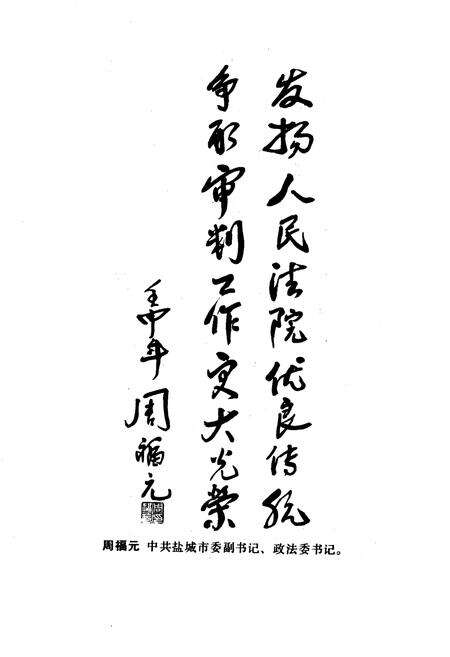 发扬人民法院优良传统
争取审判工作更大光荣
壬申年 周福元
周福元 中共盐城市委副书记、政法委书记。